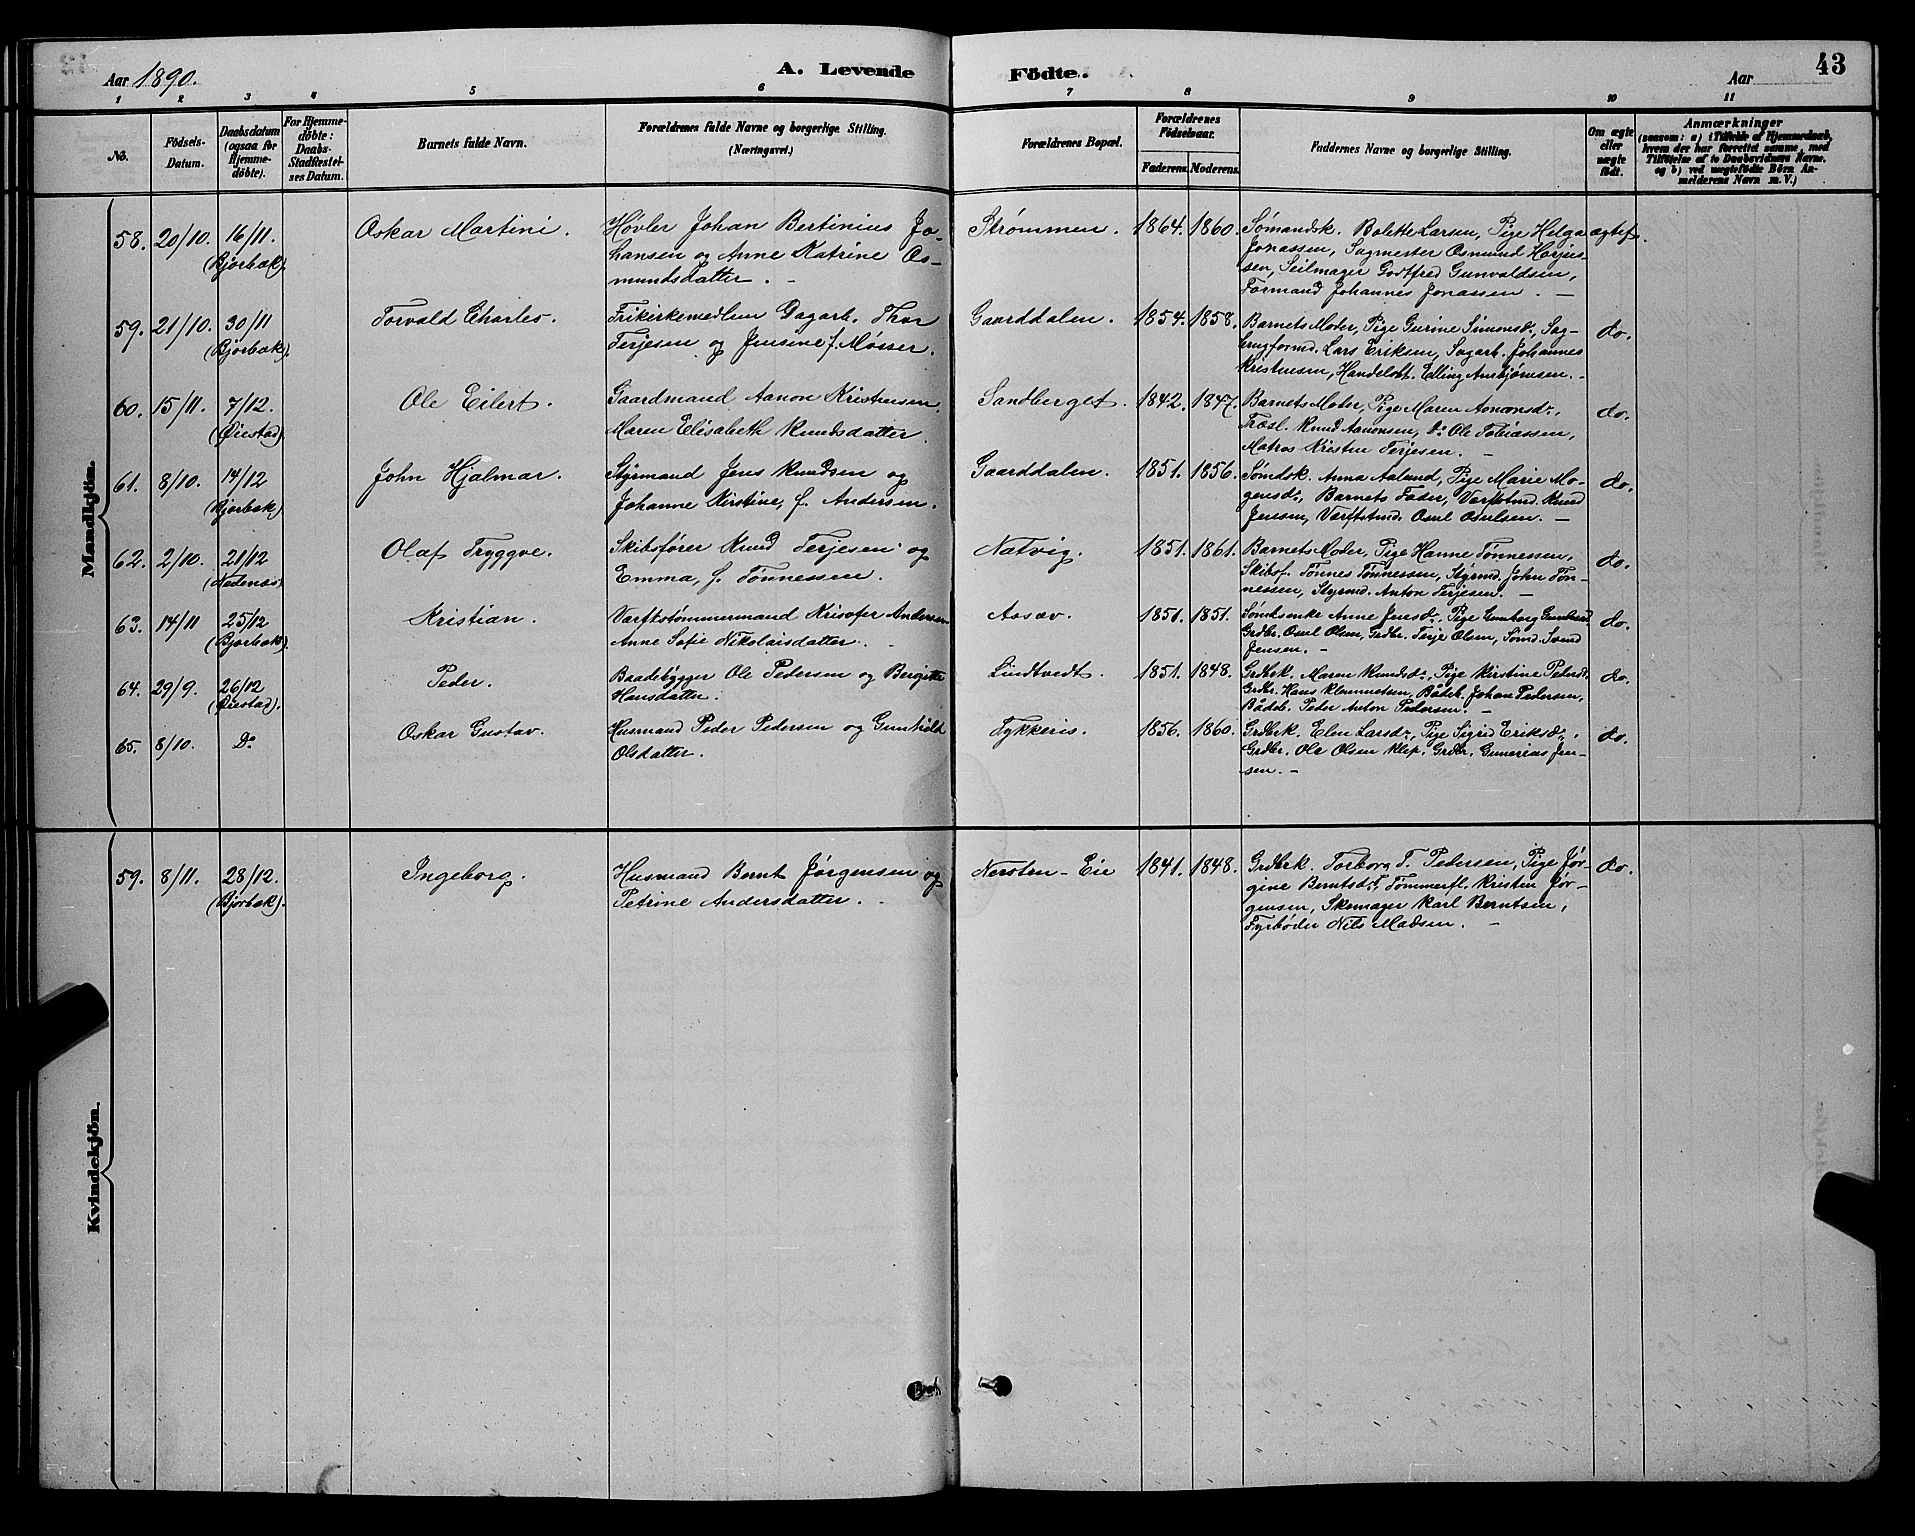 Aar 1890.
A. Levende
Födte.
Aar
43
1 2 3 4 5 6 7 8 9 10 11
No.
Födsels-
Datum.
Daabsdatum
(ogsaa for
Hjemme-
döbte).
For Hjemme-
döbte:
Daabs-
Stadfæstel-
ses Datum.
Barnets fulde Navn.
Forældrenes fulde Navne og borgerlige Stilling.
(Næringsvei.)
Forældrenes Bopæl.
Forældrenes
Födselsaar.
Faderens. Moderens.
Faddernes Navne og borgerlige Stilling.
Om ægte
eller
uægte
födt.
Anmærkninger
(saasom: a) i Tilfælde af Hjemmedaab,
hvem der har forrettet samme, med
Tilföielse af to Daabsvidners Navne,
og b) ved uægtefödte Börn An-
melderens Navn m. V.)
Mandkjön.
58. 20/10. 16/11.
(Bjorbæk).
Oskar Martini.
Høvler Johan Bertinius Jo-
hansen og Anne Katrine Os-
mundsdatter. -
Strømmen. 1864. 1860.
Sømandsk. Bolette Larsen, Pige Helga
Jonassen, Sagmester Osmund
sen, Seilmager Godtfred Gunvaldsen,
Formand Johannes Jonassen. -
ægtef.
59. 21/10. 30/11
(Bjorbæk).
Torvald Charles.
Frikirkemedlem Dagarb. Thor
Terjesen og Jensine f. Møsser.
Gaarddalen. 1854. 1858.
Barnets Moder, Pige Gurine Simonsd., Sag-
brugformd. Lars Eriksen, Sagarb. Johannes
Kristensen, Handelsbt. Edling Ansbjørnsen. -
do.
60. 15/11. 7/12.
(Øiestad)
Ole Eilert.
Gaardmand Aanon Kristensen
Maren Elisabeth Knudsdatter.
Sandberget. 1842. 1847.
Barnets Moder, Pige Maren Aanonsdr.,
Træsl. Knud Aanonsen, do Ole Tobiassen,
Matros Kristen Terjesen. -
do.
61. 8/10. 14/12
(Bjorbæk)
John Hjalmar.
Styrmand Jens Knudsen og
Johanne Kirstine, f. Andersen.
Gaarddalen. 1851. 1856.
Sømdsk. Anna Aalund, Pige Marie Mo-
gensdr., Barnets Fader, Værftsmd. Knud
Jensen, Værftsmd. Osul Osulsen. -
do.
62. 2/10. 21/12
(Nedenæs)
Olaf Tryggve.
Skibsfører Knud Terjesen og
Emma, f. Tønnessen.
Natvig. 1851. 1861.
Barnets Moder, Pige Hanne Tønnessen,
Skibsf. Tønnes Tønnessen, Styrmd. John Tøn-
nessen, Styrmd. Anton Terjesen. -
do.
63. 14/11 25/12
(Bjorbæk).
Kristian.
Værftstømmermand Kristofer Andersen
Anne Sofie Nikolaisdatter.
Aasæv. 1851. 1851.
Sømdsenke Anne Jensdr., Pige
Grdbr. Osul Olsen, Grdbr. Terje Olsen, Sømd. Svend
Jensen. -
do.
64. 29/9. 26/12
(Øiestad).
Peder.
Baadebygger Ole Pedersen og Bergitte
Hansdatter.
Lindtvedt. 1851. 1848.
Grdbrk. Maren Knudsdr., Pige Kirstine Pedersd.
Grdbr. Hans Klemmetsen, Bådeb. Johan Pedersen,
Bådeb. Peder Anton Pedersen. -
do.
65. 8/10. Do
Oskar Gustav.
Husmand Peder Pedersen og Gunhild
Olsdatter.
Tykkeris. 1856. 1860.
Grdbrk. Elen Larsdr., Pige Sigrid Eriksdr.,
Grdbr. Ole Olsen Klep, Grdbr. Gunerius Jen-
sen. -
do.
Kvindekjön.
59. 8/11. 28/12.
(Bjorbæk).
Ingeborg.
Husmand Bernt Jørgensen og
Petrine Andersdatter. -
Nersten-Eie 1841. 1848.
Grdbrk. Torborg T. Pedersen, Pige Jør-
gine Berntsdr., Tømmerfl. Kristen Jør-
gensen, Skomager Karl Berntsen,
Fyrbøder Nils Madsen. -
do.